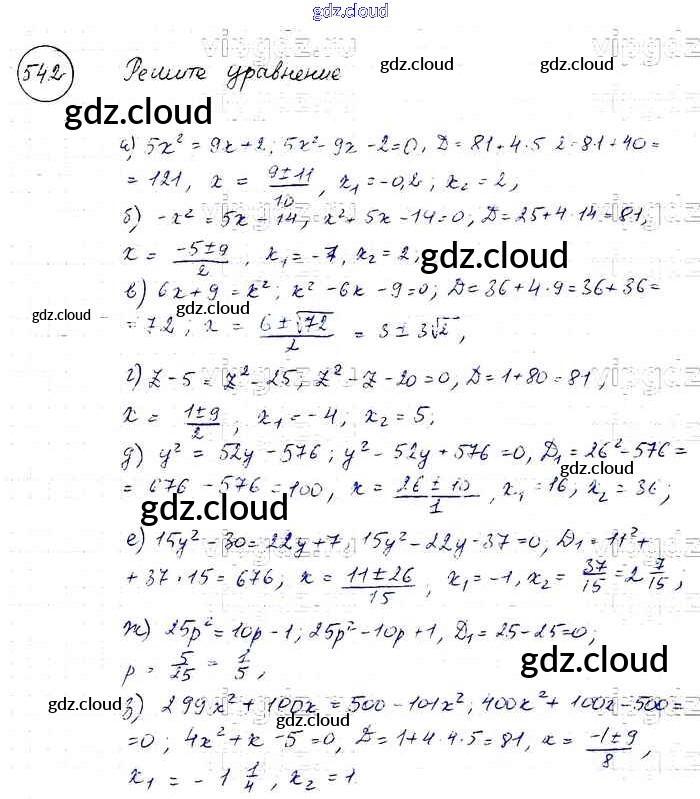 gdz.cloud
542 Решите уравнение gdz.cloud
gdz.cloud
а) 5x² = 9x+2; 5x² - 9x - 2=0, D = 81+4·5·2=81+40=
= 121, x = (9±11)/10, x₁=-0,2; x₂ = 2,
б) -x² = 5x - 14, x²+5x-14=0; D=25+4·14=81,
x = (-5±9)/2, x₁ = -7, x₂ = 2;
gdz.cloud
в) 6x+9 = x²; x² - 6x - 9=0; D=36+4·9=36+36=
gdz.cloud
= 72; x = (6±√72)/2 = 3±3√2,
г) z - 5 = z² - 25, z² - z - 20 = 0, D = 1+80 = 81,
x = (1±9)/2; x₁ = -4; x₂ = 5;
д) y² = 52y - 576; y² - 52y + 576 = 0, D₁ = 26² - 576 =
gdz.cloud
= 676 - 576 = 100, x = (26±10)/1, x₁ = 16; x₂ = 36;
gdz.cloud
е) 15y² - 30 = 22y+7, 15y² - 22y - 37 = 0, D₁ = 11² +
+ 37·15 = 676; x = (11±26)/15, x₁ = -1, x₂ = 37/15 = 2 7/15;
ж) 25p² = 10p - 1; 25p² - 10p + 1, D₁ = 25 - 25 = 0;
p = 5/25 = 1/5,
gdz.cloud
з) 299x² + 100x = 500 - 101x², 400x² + 100x - 500 =
gdz.cloud gdz.cloud
= 0; 4x² + x - 5 = 0, D = 1+4·4·5 = 81, x = (-1±9)/8,
x₁ = -1 1/4, x₂ = 1